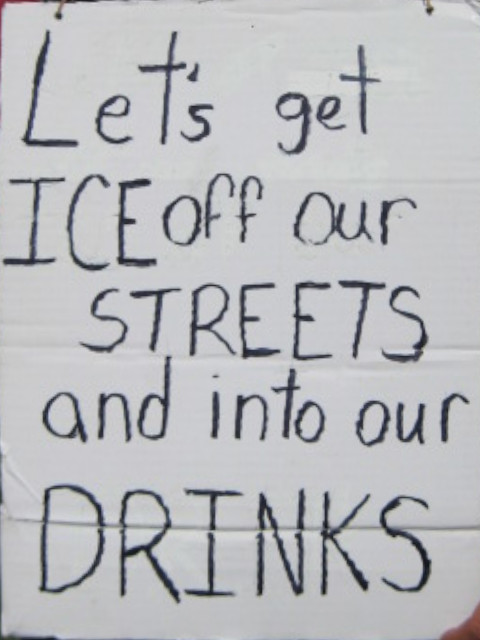 Let's get
ICE off our
STREETS
and into our
DRINKS